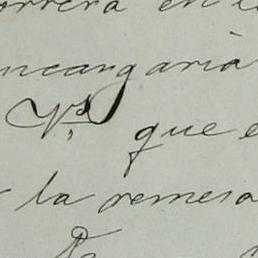 orrera en l
ncargaria
Vs. que e
la remesa